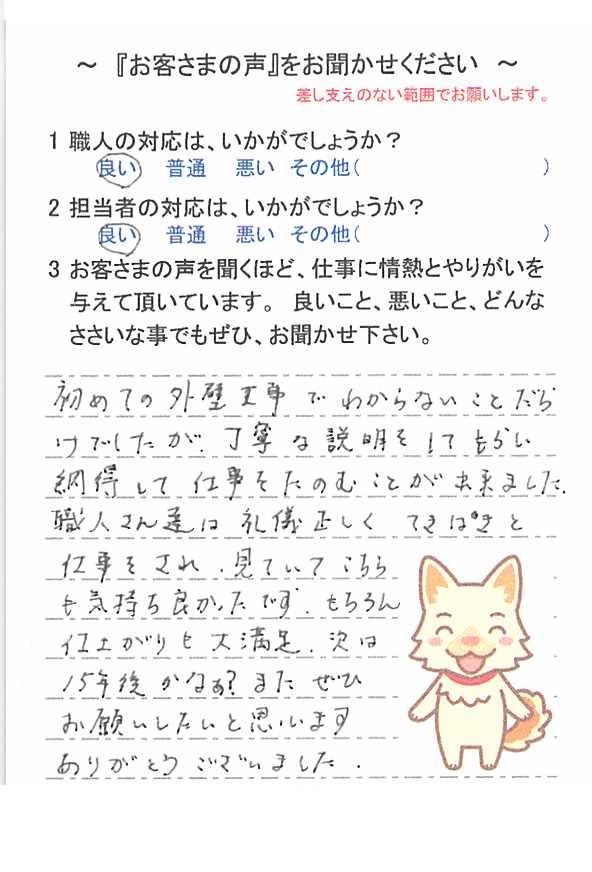 ～ 『お客さまの声』をお聞かせください ～
差し支えのない範囲でお願いします。
1 職人の対応は、いかがでしょうか？
良い 普通 悪い その他( )
2 担当者の対応は、いかがでしょうか？
良い 普通 悪い その他( )
3 お客さまの声を聞くほど、仕事に情熱とやりがいを
与えて頂いています。 良いこと、悪いこと、どんな
ささいな事でもぜひ、お聞かせ下さい。
初めての外壁工事でわからないことだら
けでしたが、丁寧な説明をしてもらい
納得して仕事をたのむことが出来ました。
職人さん達は礼儀正しくてきぱきと
仕事をされ、見ていてこちら
も気持ち良かったです。もちろん
仕上がりも大満足。次は
15年後かなぁ?またぜひ
お願いしたいと思います
ありがとうございました。